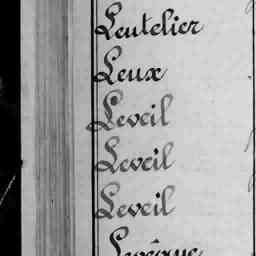 Leutelier
Leux
Leveil
Leveil
Leveil
Levêque